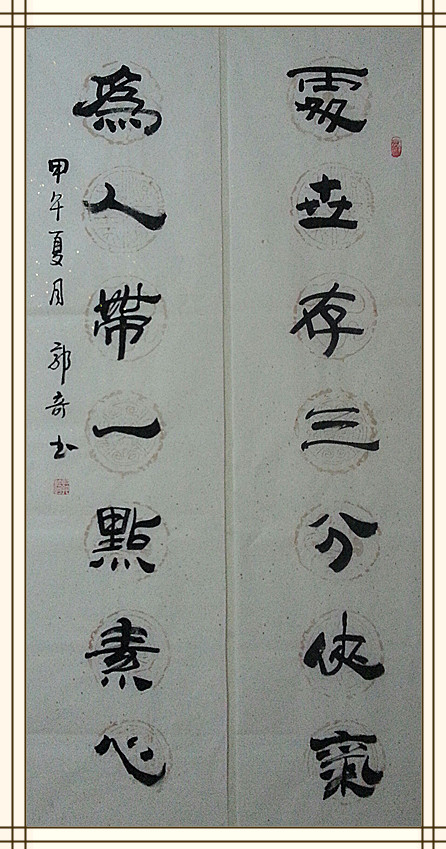 處世存三分侠氣
爲人帶一點素心
甲午夏月 郭奇书